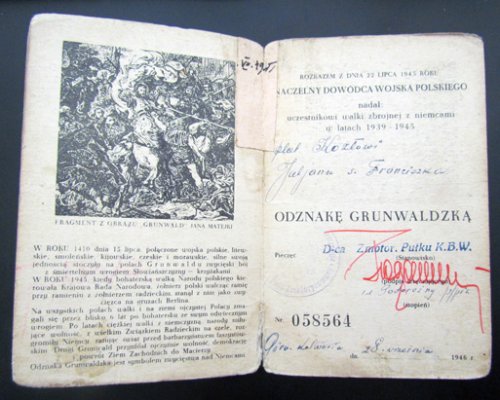 FRAGMENT Z OBRAZU „GRUNWALD" JANA MATEJKI
W ROKU 1410 dnia 15 lipca połączone wojska polskie, litew-
skie, smoleńskie kijowskie, czeskie i morawskie, silne swoją
jednością stoczyły na polach Grunwaldu zwycięski bój
z śmiertelnym wrogiem Słowiańszczyzny — krzyżakami
W ROKU 1945 kiedy bohaterską walką Narodu polskiego kie-
rowała Krajowa Rada Narodowa, żołnierz polski walcząc ramię
przy ramieniu z żołnierzem radzieckim stanął z nim jako zwy-
cięzca na gruzach Berlina.
Na wszystkich polach walki i na ziemi ojczystej Polacy zma-
gali się przez blisko 6 lat po bohatersku ze swym odwiecznym
wrogiem. Po latach ciężkiej walki z niemczyzną narody miłu-
jące wolność, z wielkim Związkiem Radzieckim na czele, roz-
gromiły Niemcy, raniąc świat przed barbarzyństwem faszyzmu.
Drugi Grunwald przyniósł ojczyźnie wolność, demokrację
i powrót Ziem Zachodnich do Macierzy
Odznaka Grunwaldzka jest symbolem zwycięstwa nad Niemcami
ROZKAZEM Z DNIA 22 LIPCA 1945 ROKU
NACZELNY DOWÓDCA WOJSKA POLSKIEGO
nadał:
uczestnikowi walki zbrojnej z niemcami
w latach 1939 - 1945
plut Kozłowi
Juljanu s. Franciszka
ODZNAKĘ GRUNWALDZKĄ
D-ca Zmotor. Pułku K.B.W.
Pieczęć
(Stanowisko)
(stopień)
Nr. 058564
Góra Kalwaria dn. 28 września 1946 r.